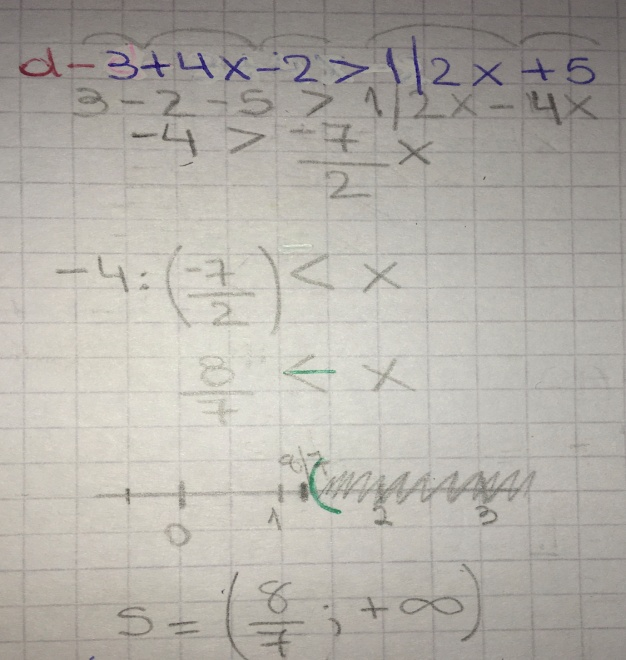 d- 3+4x-2>1/2x+5
3-2-5 > 1/2x-4x
-4 > -7/2 x
-4:(-7/2) < x
8/7 < x
8/7
0 1 2 3
S = (8/7 ; +∞)